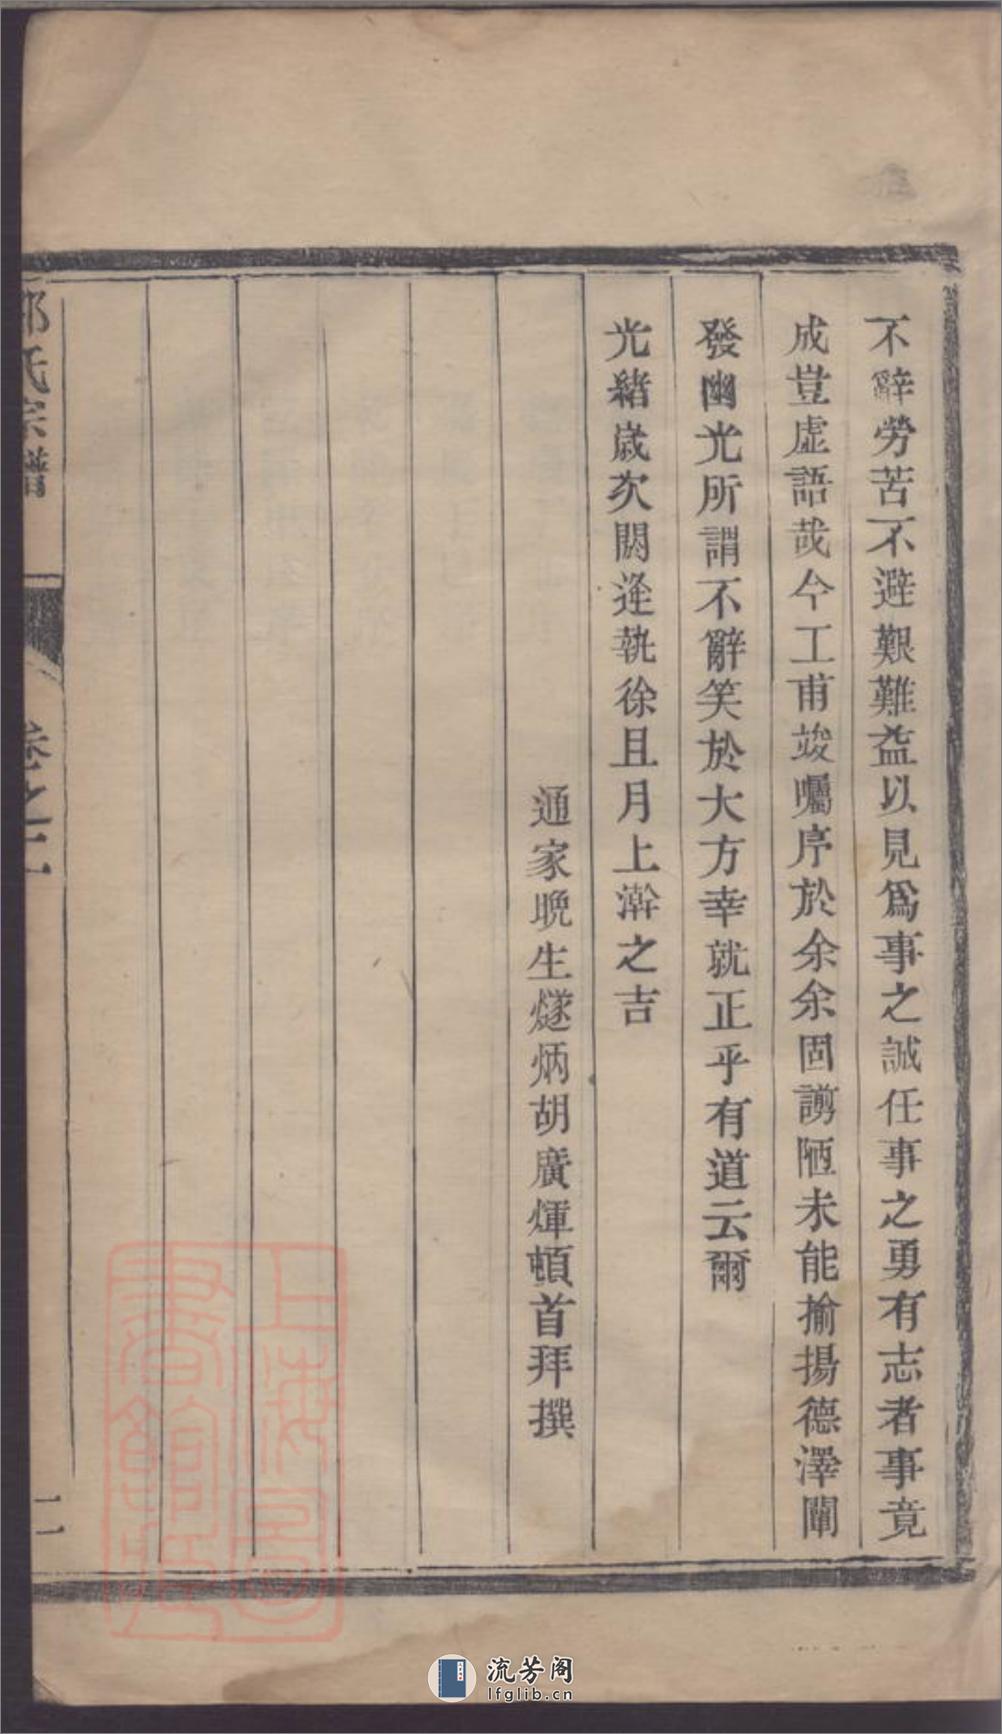 不辭勞苦不避艱難益以見爲事之誠任事之勇有志者事竟
成豈虛語哉今工甫竣囑序於余余固謭陋未能揄揚德澤闡
發幽光所謂不辭笑於大方幸就正乎有道云爾
光緒歲次閼逢執徐且月上澣之吉
通家晚生燧炳胡廣煇頓首拜撰
氏宗譜
卷之
二
上海圖書館藏
流芳阁
lfglib.cn